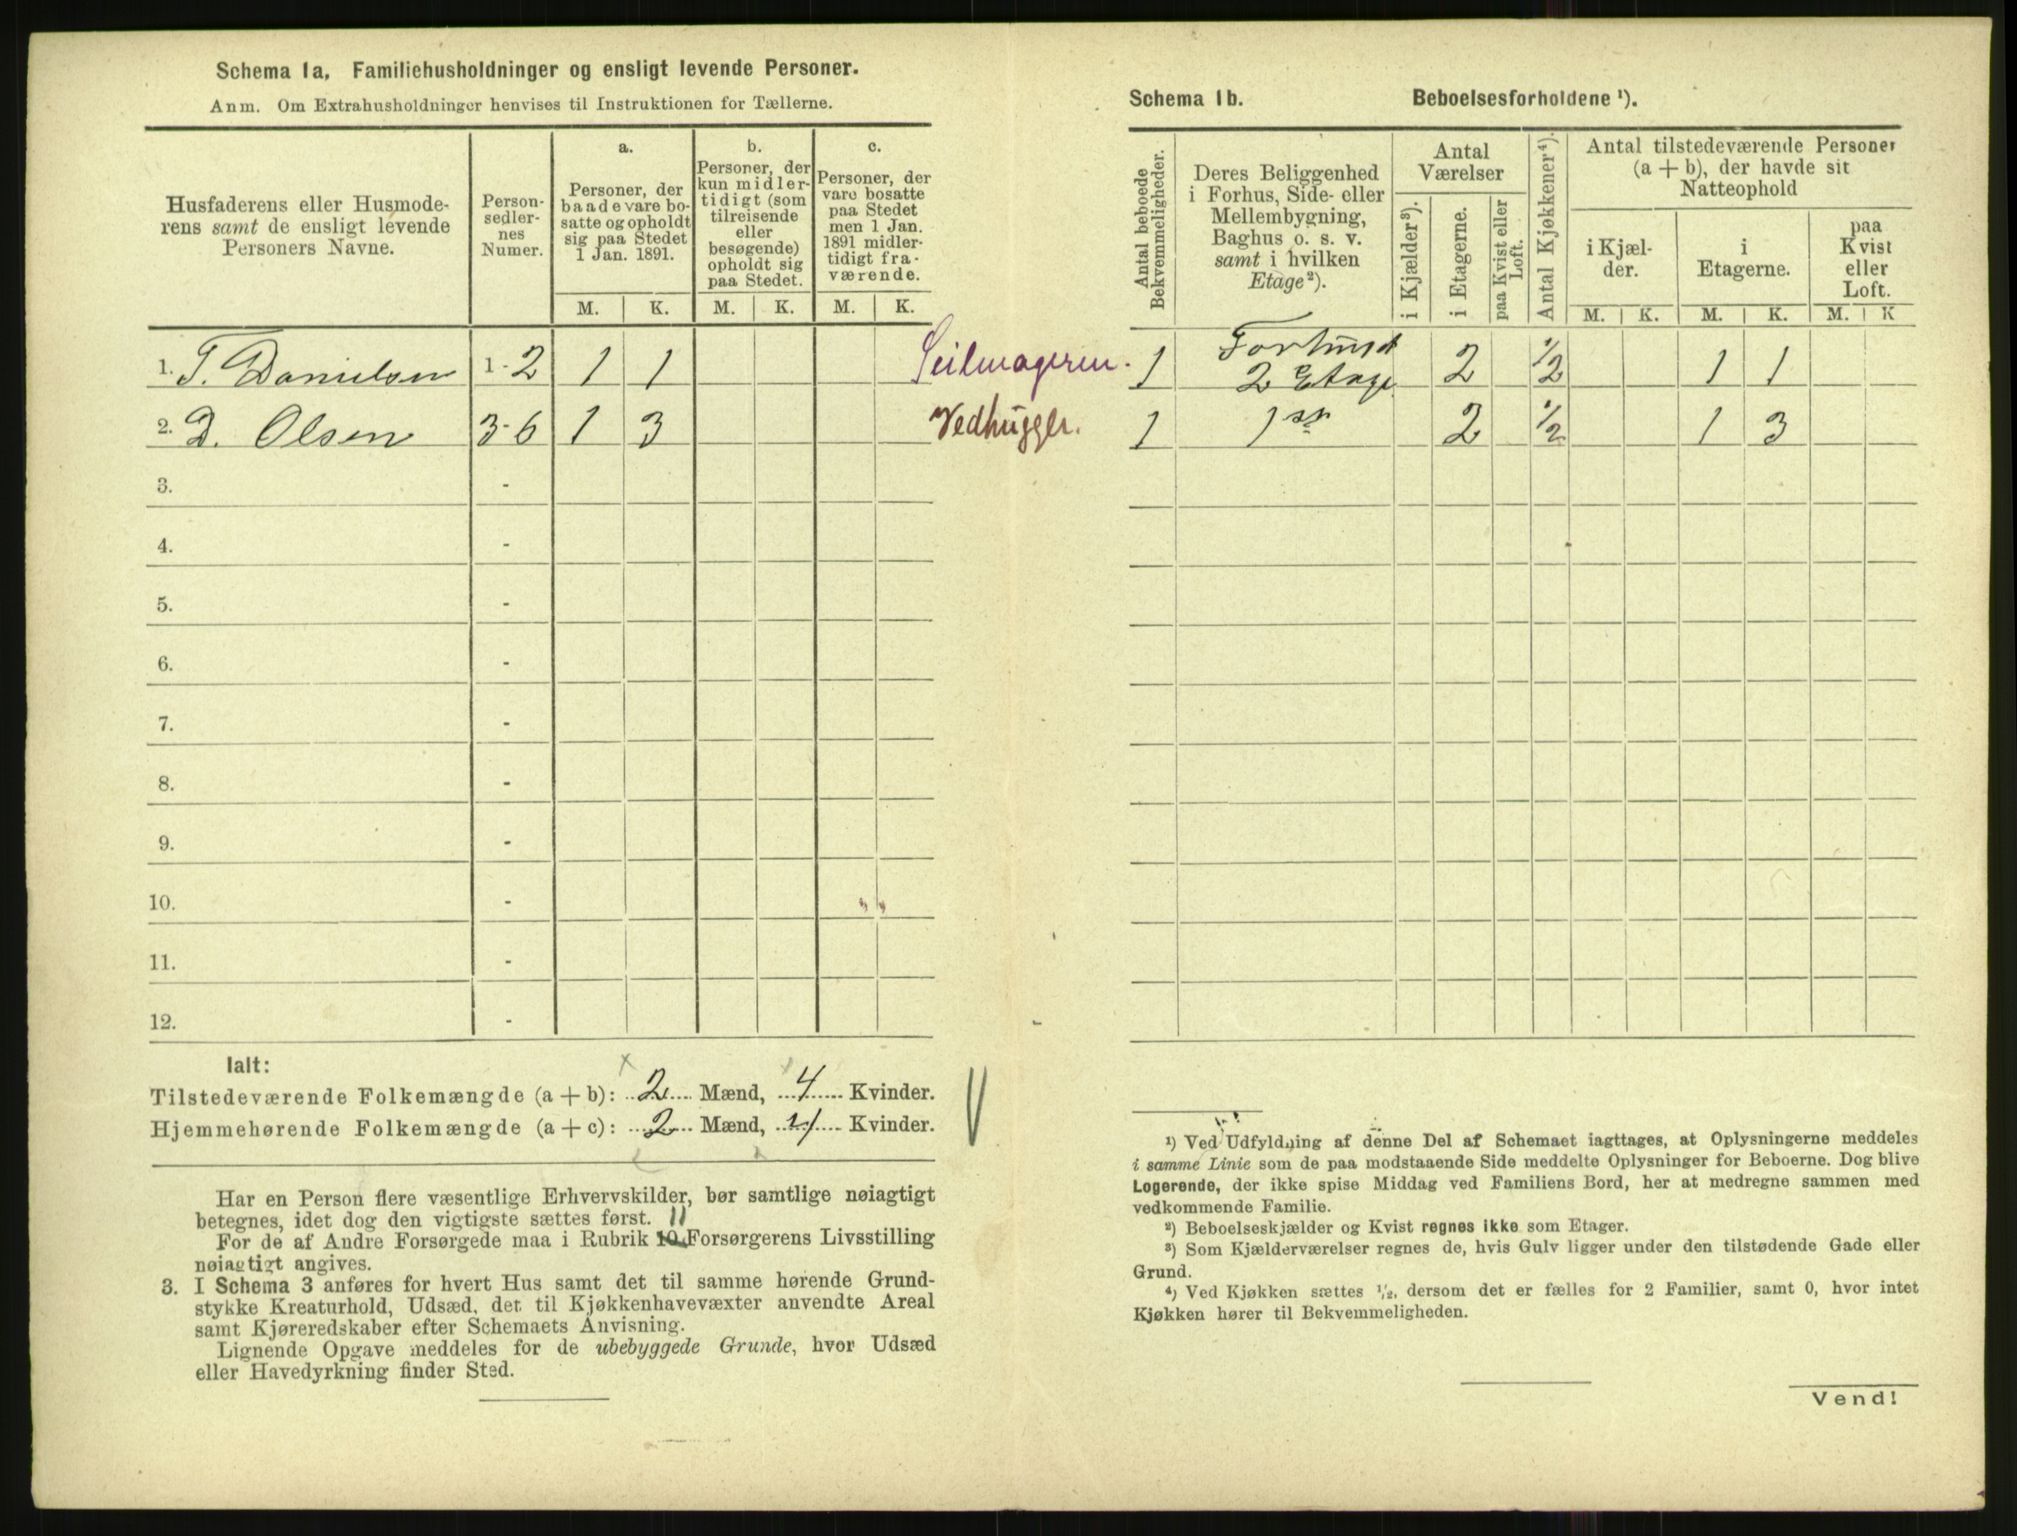 Schema 1a. Familiehusholdninger og ensligt levende Personer.
Anm. Om Extrahusholdninger henvises til Instruktionen for Tællerne.
Husfaderens eller Husmode-
rens samt de ensligt levende
Personers Navne.
Person-
sedler-
nes
Numer.
a.
Personer, der
baade vare bo-
satte og opholdt
sig paa Stedet
1 Jan. 1891.
b.
Personer, der
kun midler-
tidigt (som
tilreisende
eller
besøgende)
opholdt sig
paa Stedet.
c.
Personer, der
vare bosatte
paa Stedet
men 1 Jan.
1891 midler-
tidigt fra-
værende.
M. K. M. K. M. K.
1. T. Danielsen 1-2 1 1 Seilmagerm.
2. D. Olsen 3-6 1 3 Vedhugger.
3. -
4. -
5. -
6. -
7. -
8. -
9. -
10. - " "
11. -
12. -
Ialt:
Tilstedeværende Folkemængde (a + b): 2 Mænd, 4 Kvinder.
Hjemmehørende Folkemængde (a + c): 2 Mænd, 4 Kvinder.
Har en Person flere væsentlige Erhvervskilder, bør samtlige nøiagtigt
betegnes, idet dog den vigtigste sættes først. 11
For de af Andre Forsørgede maa i Rubrik 10 Forsørgerens Livsstilling
nøiagtigt angives.
3. I Schema 3 anføres for hvert Hus samt det til samme hørende Grund-
stykke Kreaturhold, Udsæd, det til Kjøkkenhavevæxter anvendte Areal
samt Kjøreredskaber efter Schemaets Anvisning.
Lignende Opgave meddeles for de ubebyggede Grunde, hvor Udsæd
eller Havedyrkning finder Sted.
Schema 1b. Beboelsesforholdene ¹).
Antal beboede
Bekvemmeligheder.
Deres Beliggenhed
i Forhus, Side- eller
Mellembygning,
Baghus o. s. v.
samt i hvilken
Etage²).
Antal
Værelser
i Kjælder³).
i Etagerne.
paa Kvist eller
Loft.
Antal Kjøkkener⁴).
Antal tilstedeværende Personer
(a + b), der havde sit
Natteophold
i Kjæl-
der.
i
Etagerne.
paa
Kvist
eller
Loft.
M. K. M. K. M. K
1 Forhuset
2 Etage 2 1/2 1 1
1 1ste 2 1/2 1 3
¹) Ved Udfyldning af denne Del af Schemaet iagttages, at Oplysningerne meddeles
i samme Linie som de paa modstaaende Side meddelte Oplysninger for Beboerne. Dog blive
Logerende, der ikke spise Middag ved Familiens Bord, her at medregne sammen med
vedkommende Familie.
²) Beboelseskjælder og Kvist regnes ikke som Etager.
³) Som Kjælderværelser regnes de, hvis Gulv ligger under den tilstødende Gade eller
Grund.
⁴) Ved Kjøkken sættes ¹/₂, dersom det er fælles for 2 Familier, samt 0, hvor intet
Kjøkken hører til Bekvemmeligheden.
Vend!